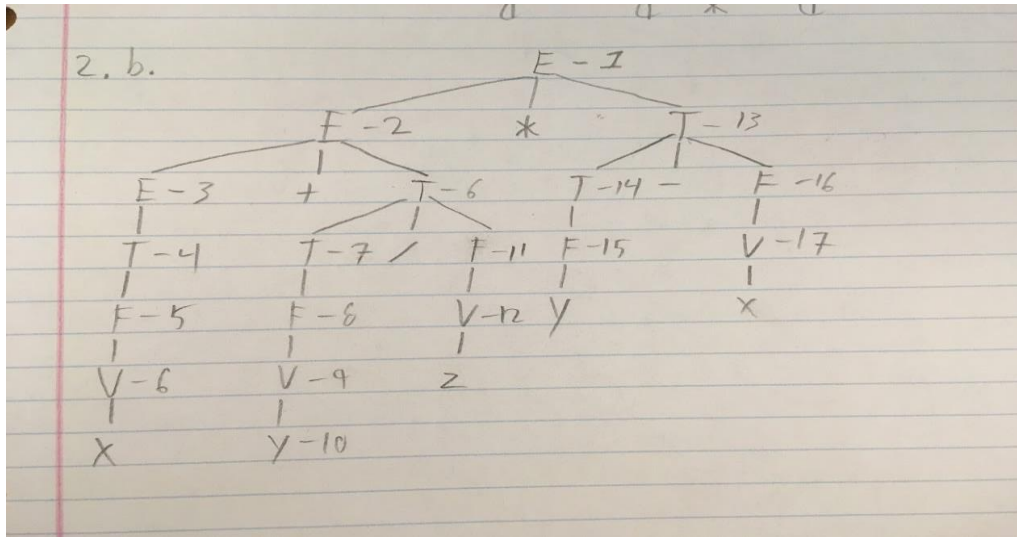 2. b. E - 1
E - 2 * T - 13
E - 3 + T - 6 T - 14 - F - 16
T - 4 T - 7 / F - 11 F - 15 V - 17
F - 5 F - 8 V - 12 Y X
V - 6 V - 9 Z
X Y - 10